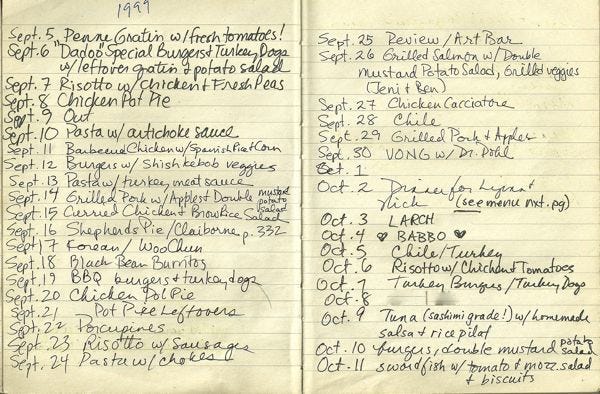 1999
Sept. 5 Penne Gratin w/fresh tomatoes!
Sept. 6 "Dadoo" Special Burgers & Turkey Dogs
w/leftover gratin & potato salad
Sept. 7 Risotto w/Chicken & Fresh Peas
Sept. 8 Chicken Pot Pie
Sept. 9 Out
Sept. 10 Pasta w/ artichoke sauce
Sept. 11 Barbecued Chicken w/Spanish Rice & Corn
Sept. 12 Burgers w/Shish kebob veggies
Sept. 13 Pasta w/ turkey meat sauce
Sept. 14 Grilled Pork w/Apples & Double mustard potato salad
Sept. 15 Curried Chicken & Brown Rice Salad
Sept. 16 Shepherds Pie/Claiborne p. 332
Sept. 17 Korean / WooChun
Sept. 18 Black Bean Burritos
Sept. 19 BBQ burgers & turkey dogs
Sept. 20 Chicken Pot Pie
Sept. 21 Pot Pie Leftovers
Sept. 22 Porcupines
Sept. 23 Risotto w/ Sausages
Sept. 24 Pasta w/ chokes
Sept. 25 Review / Art Bar
Sept. 26 Grilled Salmon w/Double
mustard Potato Salad, Grilled veggies
(Jeni & Ben)
Sept. 27 Chicken Cacciatore
Sept. 28 Chile
Sept. 29 Grilled Pork & Apples
Sept. 30 VONG w/ Dr. Pohl
Oct. 1
Oct. 2 Dinner for Lynn &
Nick (see menu nxt. pg)
Oct. 3 LARCH
Oct. 4 ♥ BABBO ♥
Oct. 5 Chile/Turkey
Oct. 6 Risotto w/ Chicken & Tomatoes
Oct. 7 Turkey Burgers / Turkey Dogs
Oct. 8
Oct. 9 Tuna (sashimi grade!) w/ homemade
salsa & rice pilaf
Oct. 10 burgers, double mustard potato salad
Oct. 11 swordfish w/ tomato & mozz. salad
& biscuits